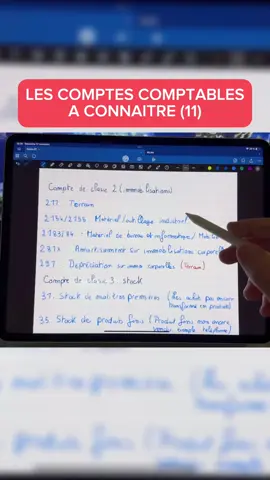 LES COMPTES COMPTABLES
A CONNAITRE (11)
Compte de classe 2 (immobilisations)
211 Terrain
2154/2155 Matériel/outillage industriel
2183/84 Matériel de bureau et informatique/
281X Amortissement sur immobilisations corporelles
291 Dépréciation sur immo corporelles (Terrain)
Compte de classe 3 stock
31. Stock de matières premières (les achats pas encore
transformé en produits)
35 Stock des produits finis (Produit finis non encore